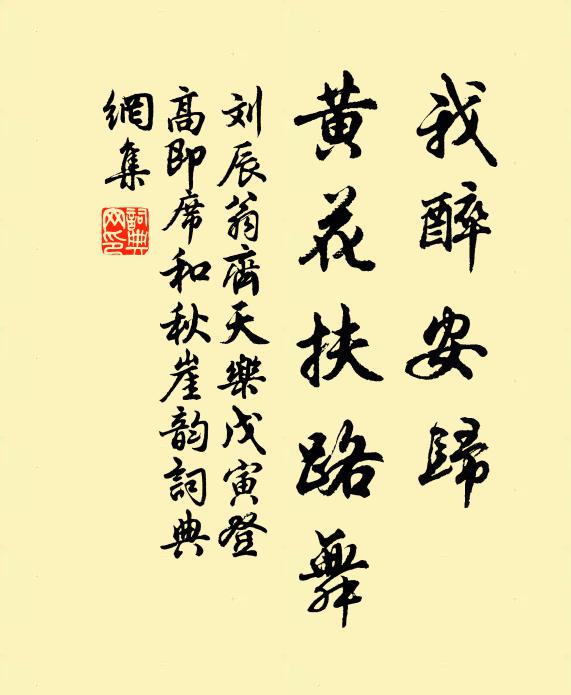 我醉安歸
黃花扶路舞
刘辰翁齊天樂戊寅登
高即席和秋崖韵詞典
網集
詞典
网印